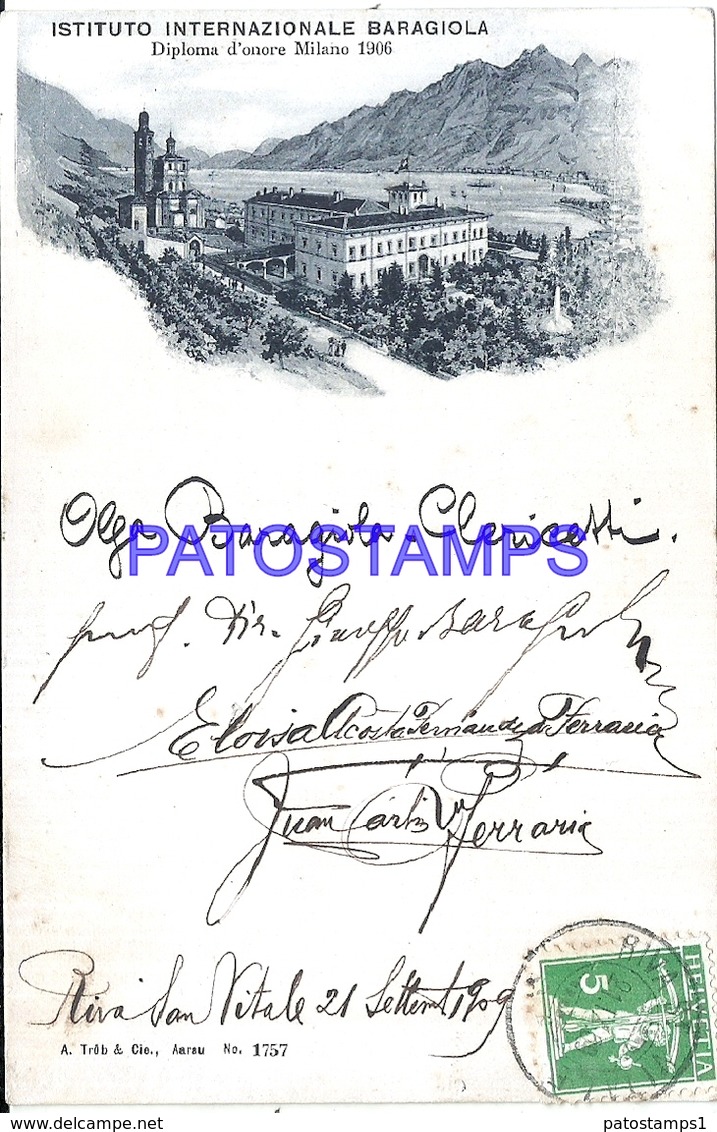 ISTITUTO INTERNAZIONALE BARAGIOLA
Diploma d'onore Milano 1906
Olga Baragiola-Clericetti.
PATOSTAMPS
prof. Dir. Giuseppe Baragiola
Eloisa Acosta Fernandez Ferraria
Juan Carlos Ferraria
Riva San Vitale 21 Settemb 1909
HELVETIA
5
A. Trüb & Cie., Aarau No. 1757
patostamps1